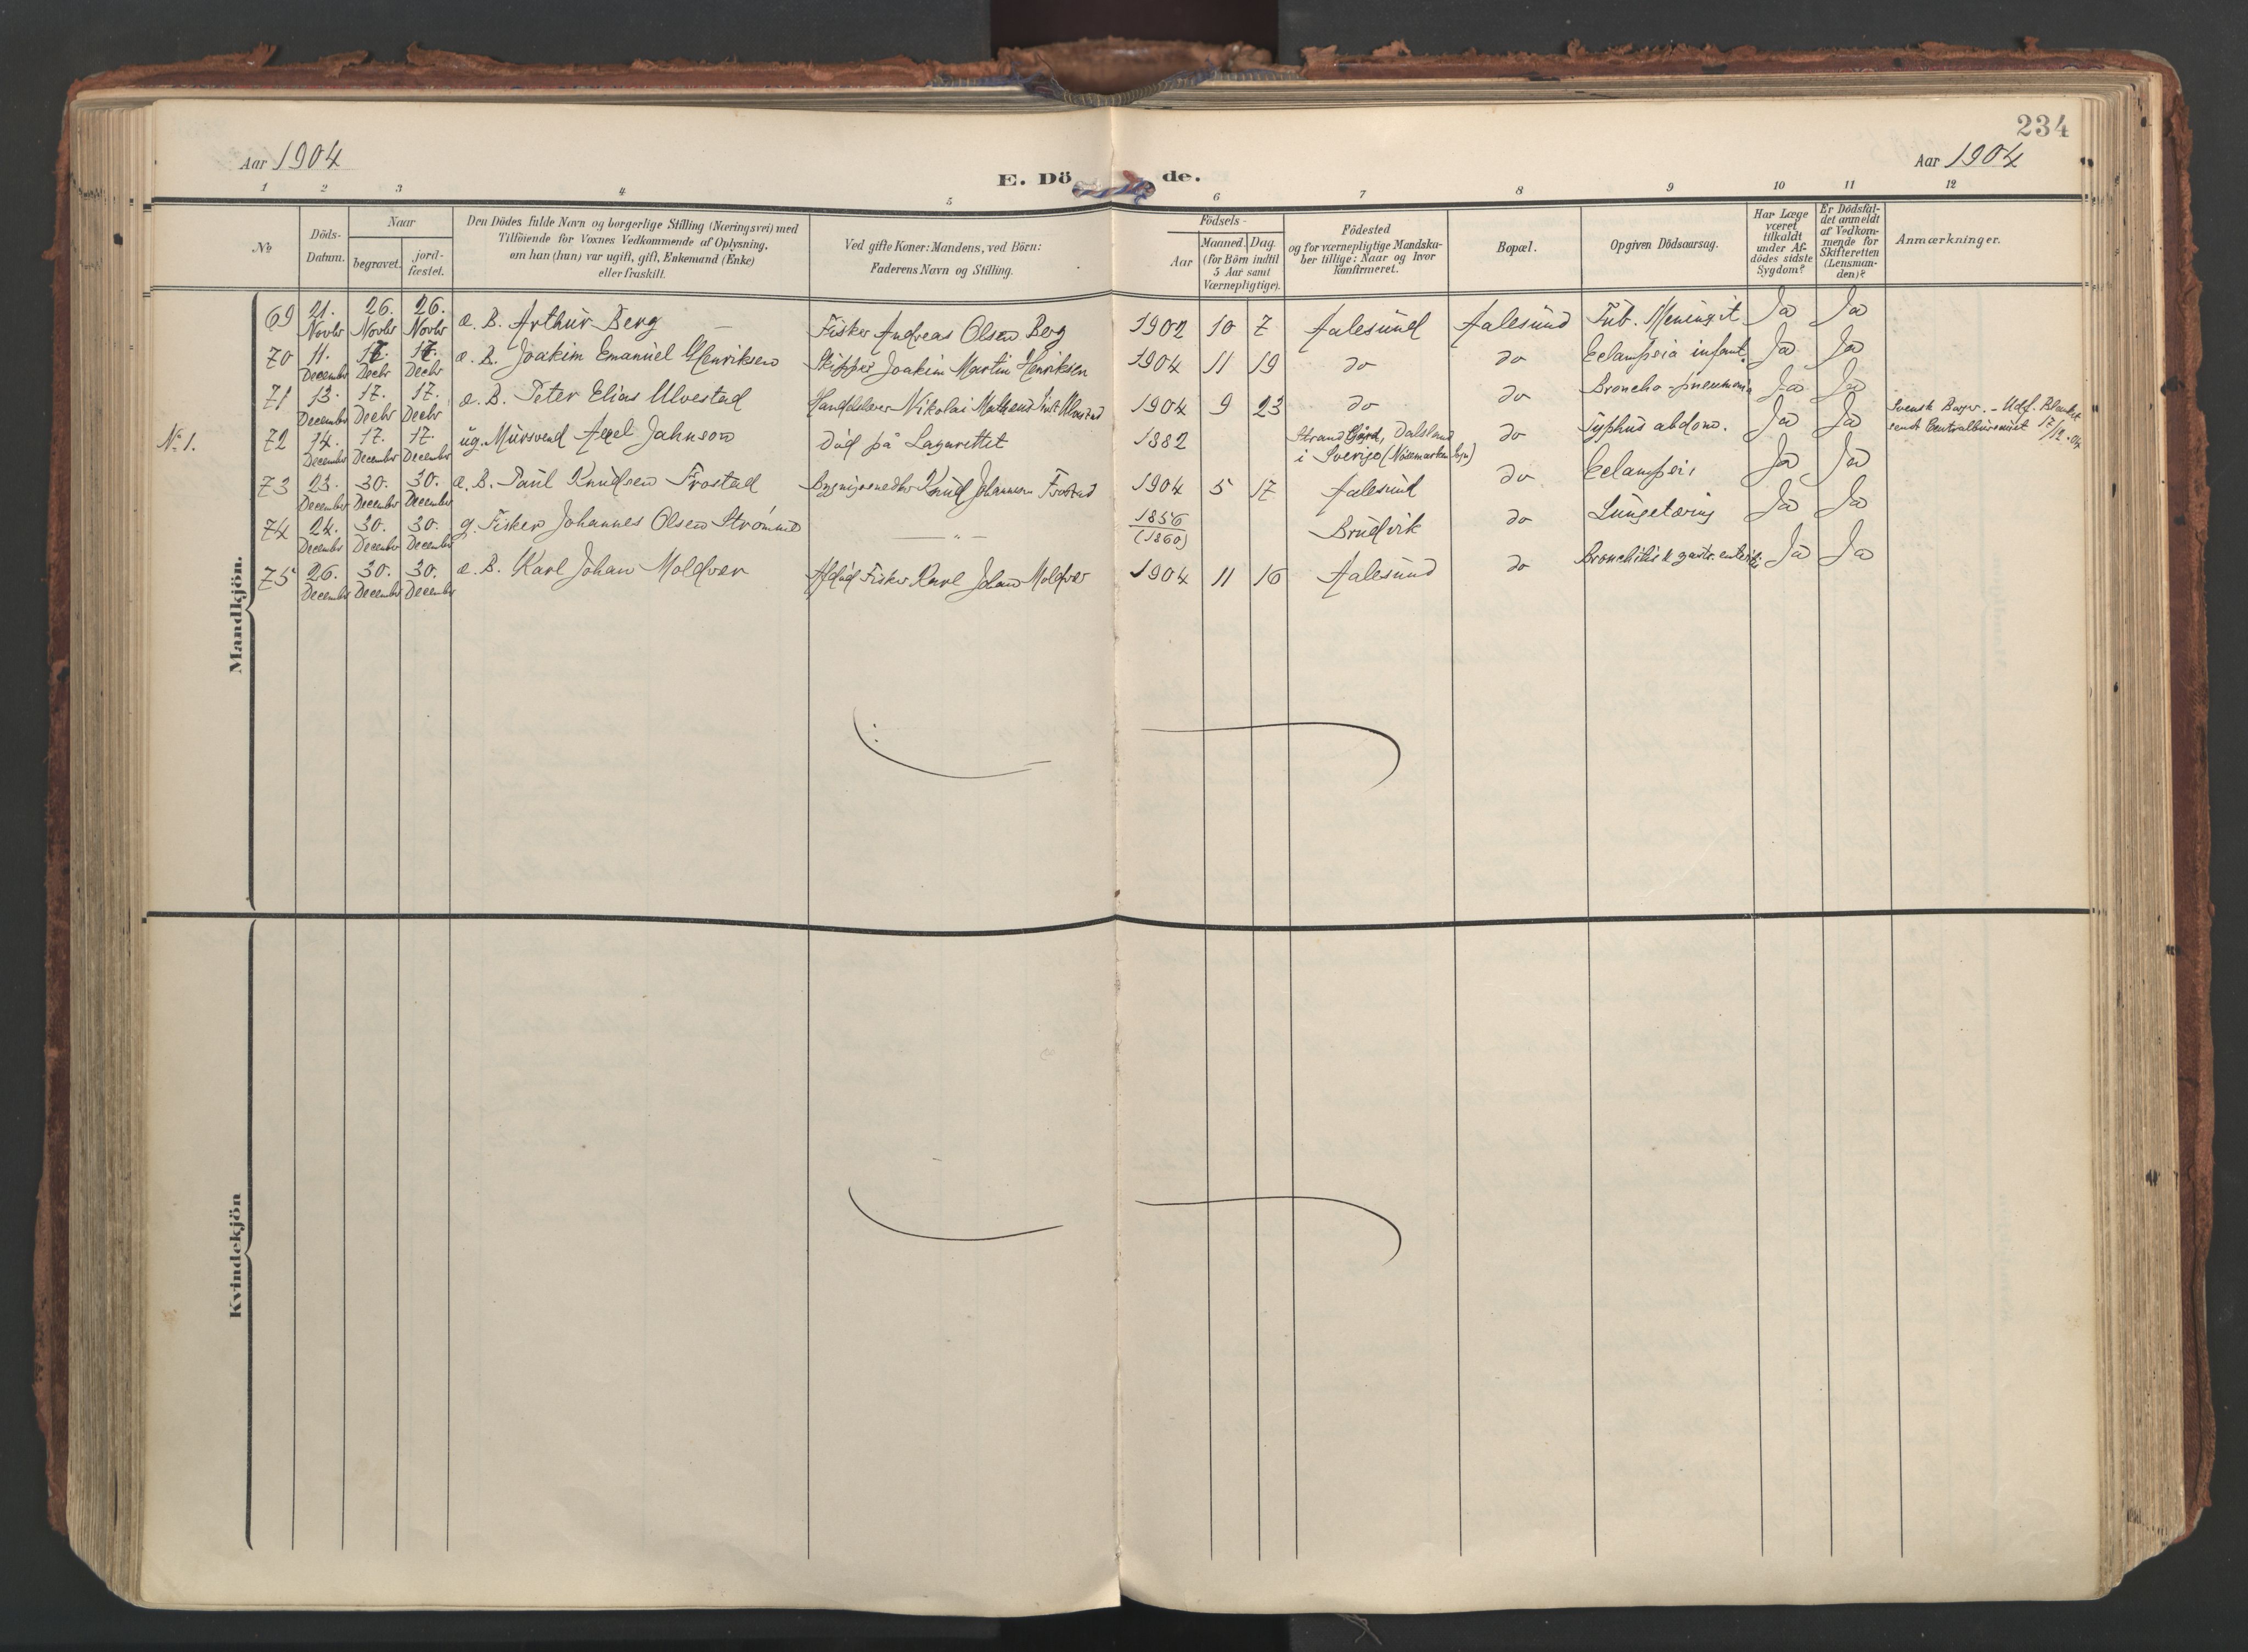 234
Aar 1904
E. Döde.
Aar 1904
1 2 3 4 5 6 7 8 9 10 11 12
No
Döds-Datum.
Naar
begravet.
jord-fæstet.
Den Dödes fulde Navn og borgerlige Stilling (Næringsvei) med
Tilföiende for Voxnes Vedkommende af Oplysning,
om han (hun) var ugift, gift, Enkemand (Enke)
eller fraskilt.
Ved gifte Koner: Mandens, ved Börn:
Faderens Navn og Stilling.
Födsels-
Aar
Maaned. Dag.
(for Börn indtil
5 Aar samt
Værnepligtige).
Födested
og for værnepligtige Mandska-
ber tillige: Naar og hvor
konfirmeret.
Bopæl.
Opgiven Dödsaarsag.
Har Læge
været
tilkaldt
under Af-
dödes sidste
Sygdom?
Er Dödsfal-
det anmeldt
af Vedkom-
mende for
Skifteretten
(Lensman-
den)?
Anmærkninger.
Mandkjön.
69 21. Novbr 26. Novbr 26. Novbr æ. B. Arthur Berg Fisker Andreas Olsen Berg 1902 10 7 Aalesund Aalesund Tub. Meningit Ja Ja
70 11. Decembr 17. Decbr 17. Decbr æ. B. Joakim Emanuel Henriksen Skipper Joakim Martin Henriksen 1904 11 19 do do Eclampsia infant. Ja Ja
71 13. Decembr 17. Decbr 17. Decbr æ. B. Peter Elias Ulvestad Nikolai Ulvestad 1904 9 23 do do Broncho-pneumoni Ja Ja
No 1. 72 14. Decembr 17. Decembr 17. Decembr ug. Mursvend Axel Johnson Död på Lazarettet 1882 Strand Gård, Dalsland i Sverige (Nössemarken) do Typhus abdom. Ja Ja Svensk Borger. - Udf. Blanket sendt Centralbureauet 17/12.04
73 23. Decembr 30. Decembr 30. Decembr æ. B. Paul Knudsen Frostad Knud Johannesen Frostad 1904 5 17 Aalesund do Eclampsia Ja Ja
74 24. Decembr 30. Decembr 30. Decembr g. Fisker Johannes Olsen Strömme — " — 1856 (1860) Brudvik do Lungetæring Ja Ja
75 26. Decembr 30. Decembr 30. Decembr æ. B. Karl Johan Moldvær Afdöd Fisker Karl Johan Moldvær 1904 11 16 Aalesund do Bronchitis & gastr. enterit. Ja Ja
Kvindekjön